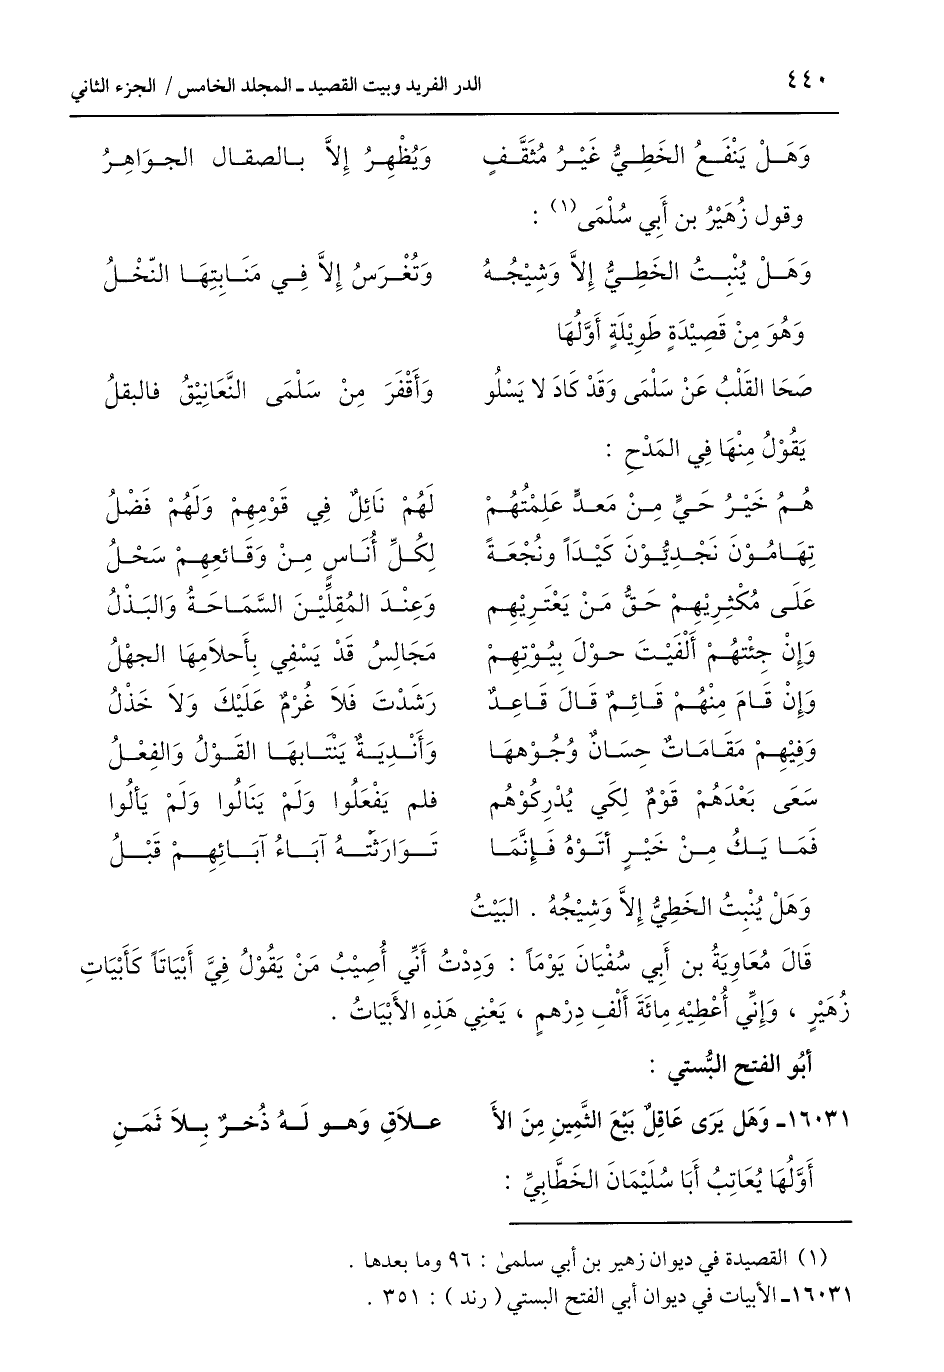 ٤٤٠ الدر الفريد وبيت القصيد ـ المجلد الخامس / الجزء الثاني
وَهَلْ يَنْفَعُ الخَطِيُّ غَيْرُ مُثَقَّفٍ وَيُظْهِرُ إِلاَّ بالصقال الجواهِرُ
وقول زُهَيْرُ بن أَبِي سُلْمَى(١) :
وَهَلْ يُنْبِتُ الخَطِيُّ إِلاَّ وَشِيْجُهُ وَتُغْرَسُ إِلاَّ فِي مَنَابِتِهَا النَّخْلُ
وَهُوَ مِنْ قَصِيْدَةٍ طَوِيْلَةٍ أَوَّلُهَا
صَحَا القَلْبُ عَنْ سَلْمَى وَقَدْ كَادَ لا يَسْلُو وَأَقْفَرَ مِنْ سَلْمَى التَّعَانِيْقُ فالبقلُ
يَقُوْلُ مِنْهَا فِي المَدْحِ :
هُمُ خَيْرُ حَيٍّ مِنْ مَعَدٍّ عَلِمْتُهُمْ لَهُمْ نَائِلٌ فِي قَوْمِهِمْ وَلَهُمْ فَضْلُ
تِهَامُوْنَ نَجْدِيُّوْنَ كَيْدَاً ونُجْعَةً لِكُلِّ أُنَاسٍ مِنْ وَقَائِعِهِمْ سَجْلُ
عَلَى مُكْثِرِيْهِمْ حَقُّ مَنْ يَعْتَرِيْهِم وَعِنْدَ المُقِلِّيْنَ السَّمَاحَةُ وَالبَذْلُ
وَإِنْ جِئْتَهُمْ أَلْفَيْتَ حوْلَ بيُوْتِهِمْ مَجَالِسُ قَدْ يَسْفِي بِأَحلاَمِهَا الجهْلُ
وَإِنْ قَامَ مِنْهُمْ قَائِمٌ قَالَ قَاعِدٌ رَشَدْتَ فَلاَ غُرْمٌ عَلَيْكَ وَلاَ خَذْلُ
وَفِيْهِمْ مَقَامَاتٌ حِسَانٌ وُجُوْهُهَا وَأَنْدِيَةٌ يَنْتَابهَا القَوْلُ وَالفِعْلُ
سَعَى بَعْدَهُمْ قَوْمٌ لِكَي يُدْرِكُوْهُم فلم يَفْعَلُوا وَلَمْ يَنَالُوا وَلَمْ يَألُوا
فَمَا يَكُ مِنْ خَيْرٍ أَتَوْهُ فَإِنَّمَا تَوَارَثَهُ آبَاءُ آبَائِهِمْ قَبْلُ
وَهَلْ يُنْبِتُ الخَطِيُّ إِلاَّ وَشِيْجُهُ . البَيْتُ
قَالَ مُعَاوِيَةُ بن أَبِي سُفْيَانَ يَوْمَاً : وَدِدْتُ أَنِّي أُصِيْبُ مَنْ يَقُوْلُ فِيَّ أَبْيَاتَاً كَأَبْيَاتِ
زُهَيْرٍ ، وَإِنِّي أُعْطِيْهِ مِائَةَ أَلْفِ دِرْهمٍ ، يَعْنِي هَذِهِ الأَبْيَاتُ .
أبُو الفتح البُستي :
١٦٠٣١ـ وَهَل يَرَى عَاقِلٌ بَيْعَ الثَّمِينِ مِنَ الأَ عـلاَقِ وَهـو لَـهُ ذُخـرٌ بِـلاَ ثَمَـنِ
أَوَّلُهَا يُعَاتِبُ أَبَا سُلَيْمَانَ الخَطَّابِيِّ :
(١) القصيدة في ديوان زهير بن أبي سلمىٰ : ٩٦ وما بعدها .
١٦٠٣١ـ الأبيات في ديوان أبي الفتح البستي ( رند ) : ٣٥١ .